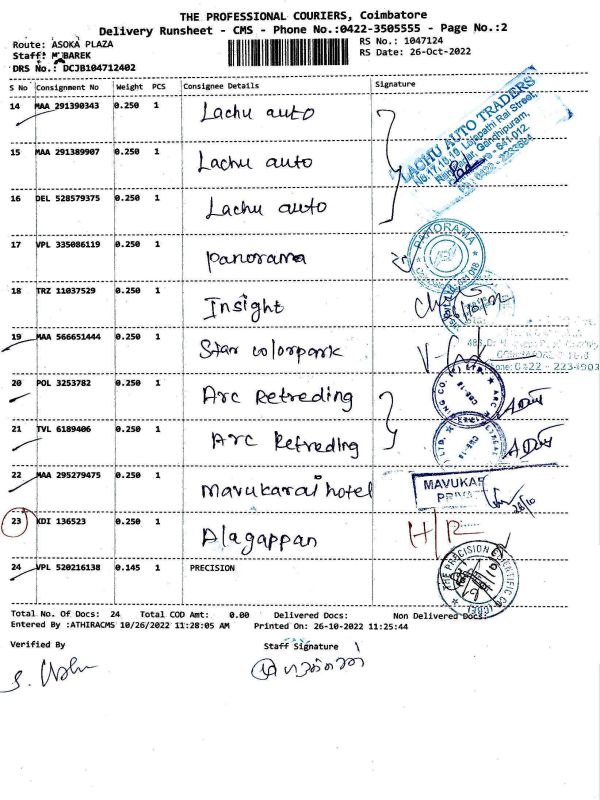 THE PROFESSIONAL COURIERS, Coimbatore
Delivery Runsheet - CMS - Phone No.:0422-3505555 - Page No.:2
Route: ASOKA PLAZA
RS No.: 1047124
Staff: M BAREK
RS Date: 26-Oct-2022
DRS No.: DCJB104712402
S No Consignment No Weight PCS Consignee Details Signature
14 MAA 291390343 0.250 1 Lachu auto
LACHU AUTO TRADERS
15 MAA 291389907 0.250 1 Lachu auto
16 DEL 528579375 0.250 1 Lachu auto
17 VPL 335086119 0.250 1 panorama
PANORAMA
18 TRZ 11037529 0.250 1 Insight
19 MAA 566651444 0.250 1 Star colorpark
20 POL 3253782 0.250 1 Arc Retreding
21 TVL 6189406 0.250 1 Arc Retreding
22 MAA 295279475 0.250 1 mavukarai hotel
MAVUKAR
PRIVA
23 KDI 136523 0.250 1 Alagappan H/R
24 VPL 520216138 0.145 1 PRECISION
THE PRECISION SCIENTIFIC CO (CBE)
Total No. Of Docs: 24 Total COD Amt: 0.00 Delivered Docs: Non Delivered Docs:
Entered By :ATHIRACMS 10/26/2022 11:28:05 AM Printed On: 26-10-2022 11:25:44
Verified By Staff Signature